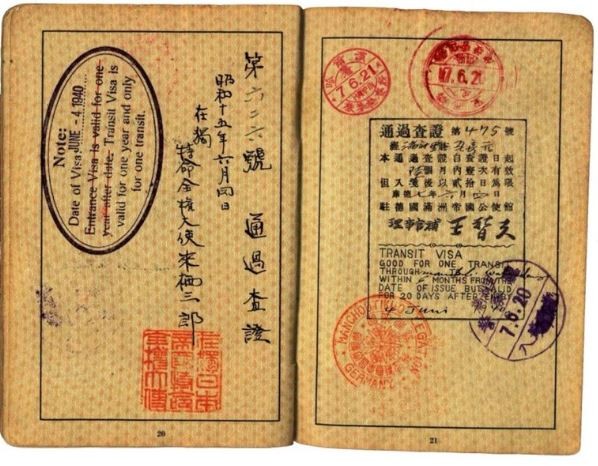 Note:
Date of Visa: JUNE - 4. 1940
Entrance Visa is valid for one
year after date. Transit Visa is
valid for one year and only
for one transit.
第六二六號 通過査證
昭和十五年六月四日
在獨
特命全權大使来栖三郎
20
7.6.21
7.6.21
通過査證 第475號
本通過査證自査證日起
個月內壹次有效
但入境後以貳拾日為限
康德七年六月四日
駐德國滿洲帝國公使館
理事官補 王替夫
TRANSIT VISA
GOOD FOR ONE TRANSIT
THROUGH
WITHIN MONTHS FROM THE
DATE OF ISSUE BUT VALID
FOR 20 DAYS AFTER ENTRY
4 Juni
MANCHOUTIKUO LEGATION
GERMANY
7.6.20
21